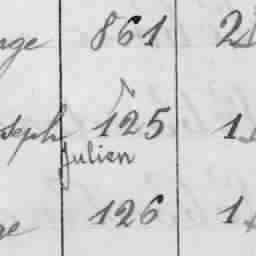 nge 861 2
seph 125 1
Julien
126 1